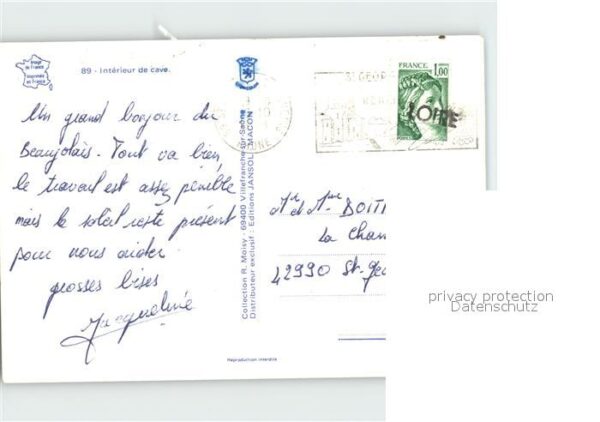 Image de France
Imprimée en France
89 - Intérieur de cave.
Un grand bonjour du
Beaujolais. Tout va bien,
le travail est assez pénible
mais le soleil reste présent
pour nous aider
grosses bises
Jacqueline
Collection R. Moisy - 69400 Villefranche-sur-Saône
Distributeur exclusif : Editions JANSOL - MACON
Reproduction interdite
ST GEOR
FRANCE
1,00
LOIRE
POSTES
Mr et Mme BOITI
La Cham
42990 St-Geo
privacy protection
Datenschutz